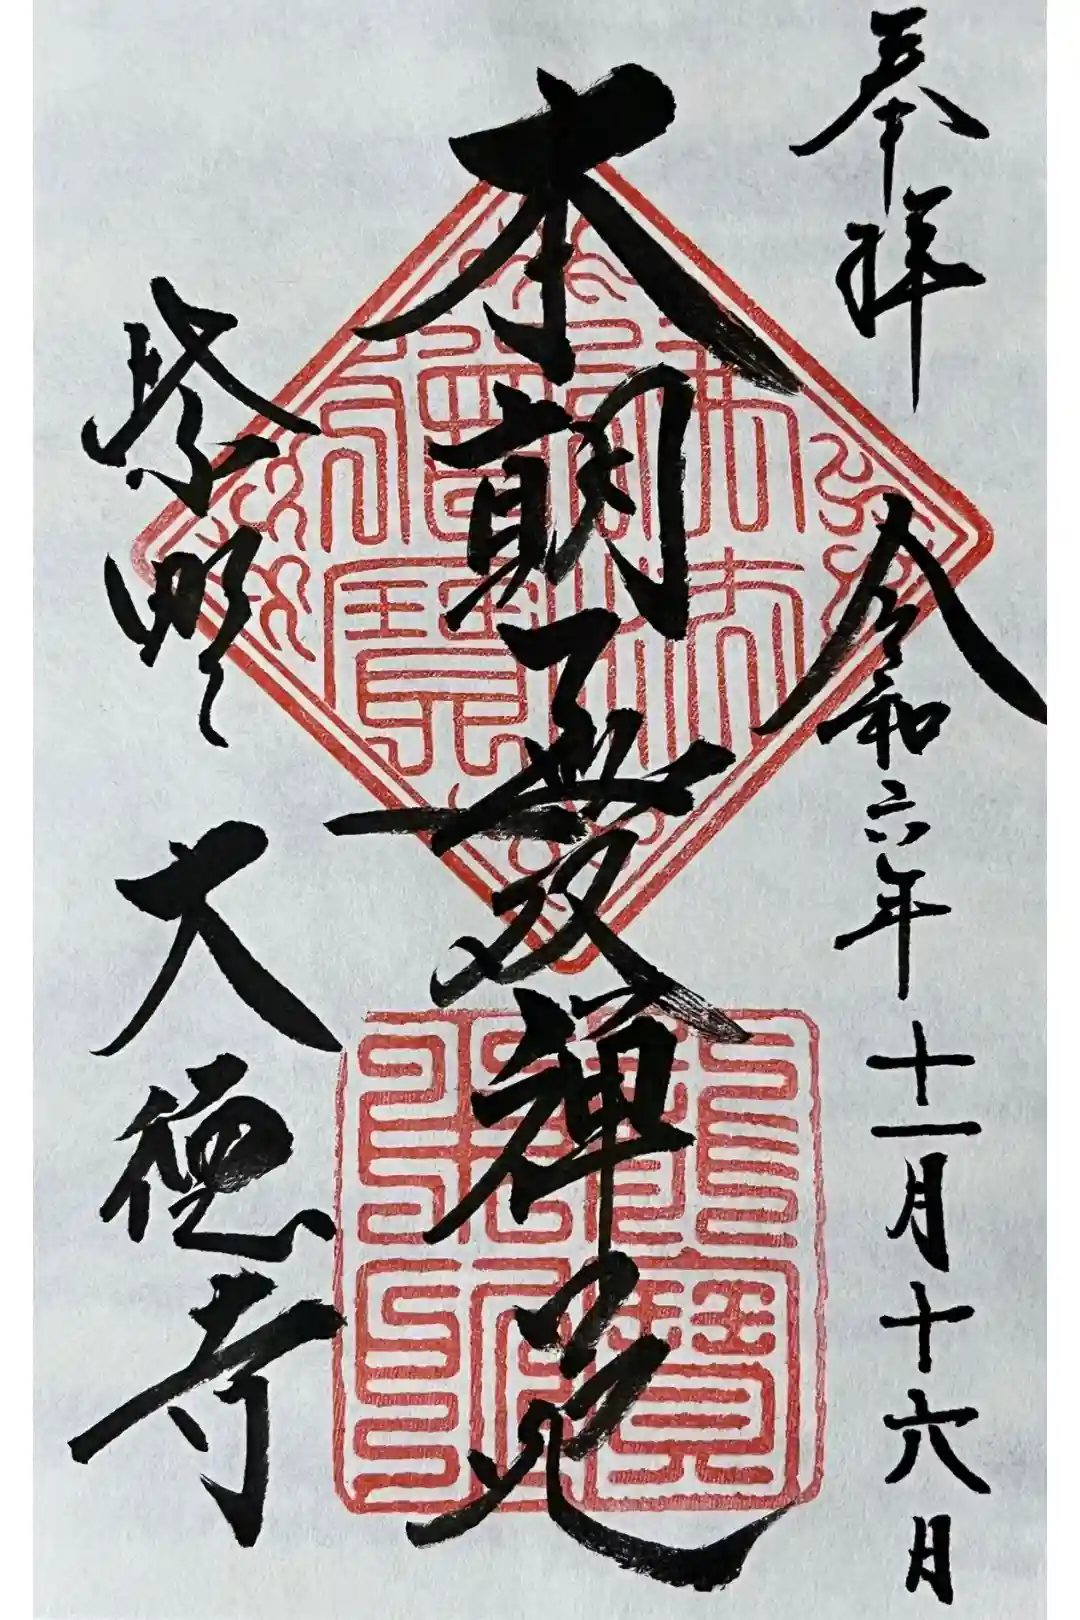 奉拝
令和六年十一月十六日
本朝無双禅苑
紫野
大徳寺